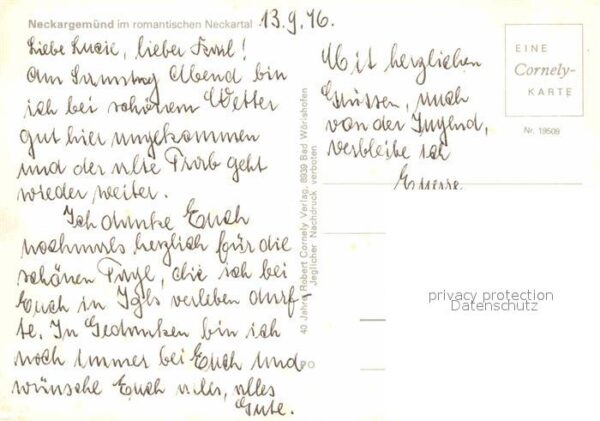 Neckargemünd im romantischen Neckartal
13.9.76.
Liebe Luzie, lieber Karl!
Am Samstag Abend bin
ich bei schönem Wetter
gut hier angekommen
und der alte Trab geht
wieder weiter.
Ich danke Euch
nochmals herzlich für die
schönen Tage, die ich bei
Euch in Igls verleben durf-
te. In Gedanken bin ich
noch immer bei Euch und
wünsche Euch alles, alles
Gute.
Mit herzlichen
Grüssen, auch
von der Jugend,
verbleibe ich
40 Jahre Robert Cornely Verlag, 8939 Bad Wörishofen
Jeglicher Nachdruck verboten
PO
EINE
Cornely-
KARTE
Nr. 19509
privacy protection
Datenschutz